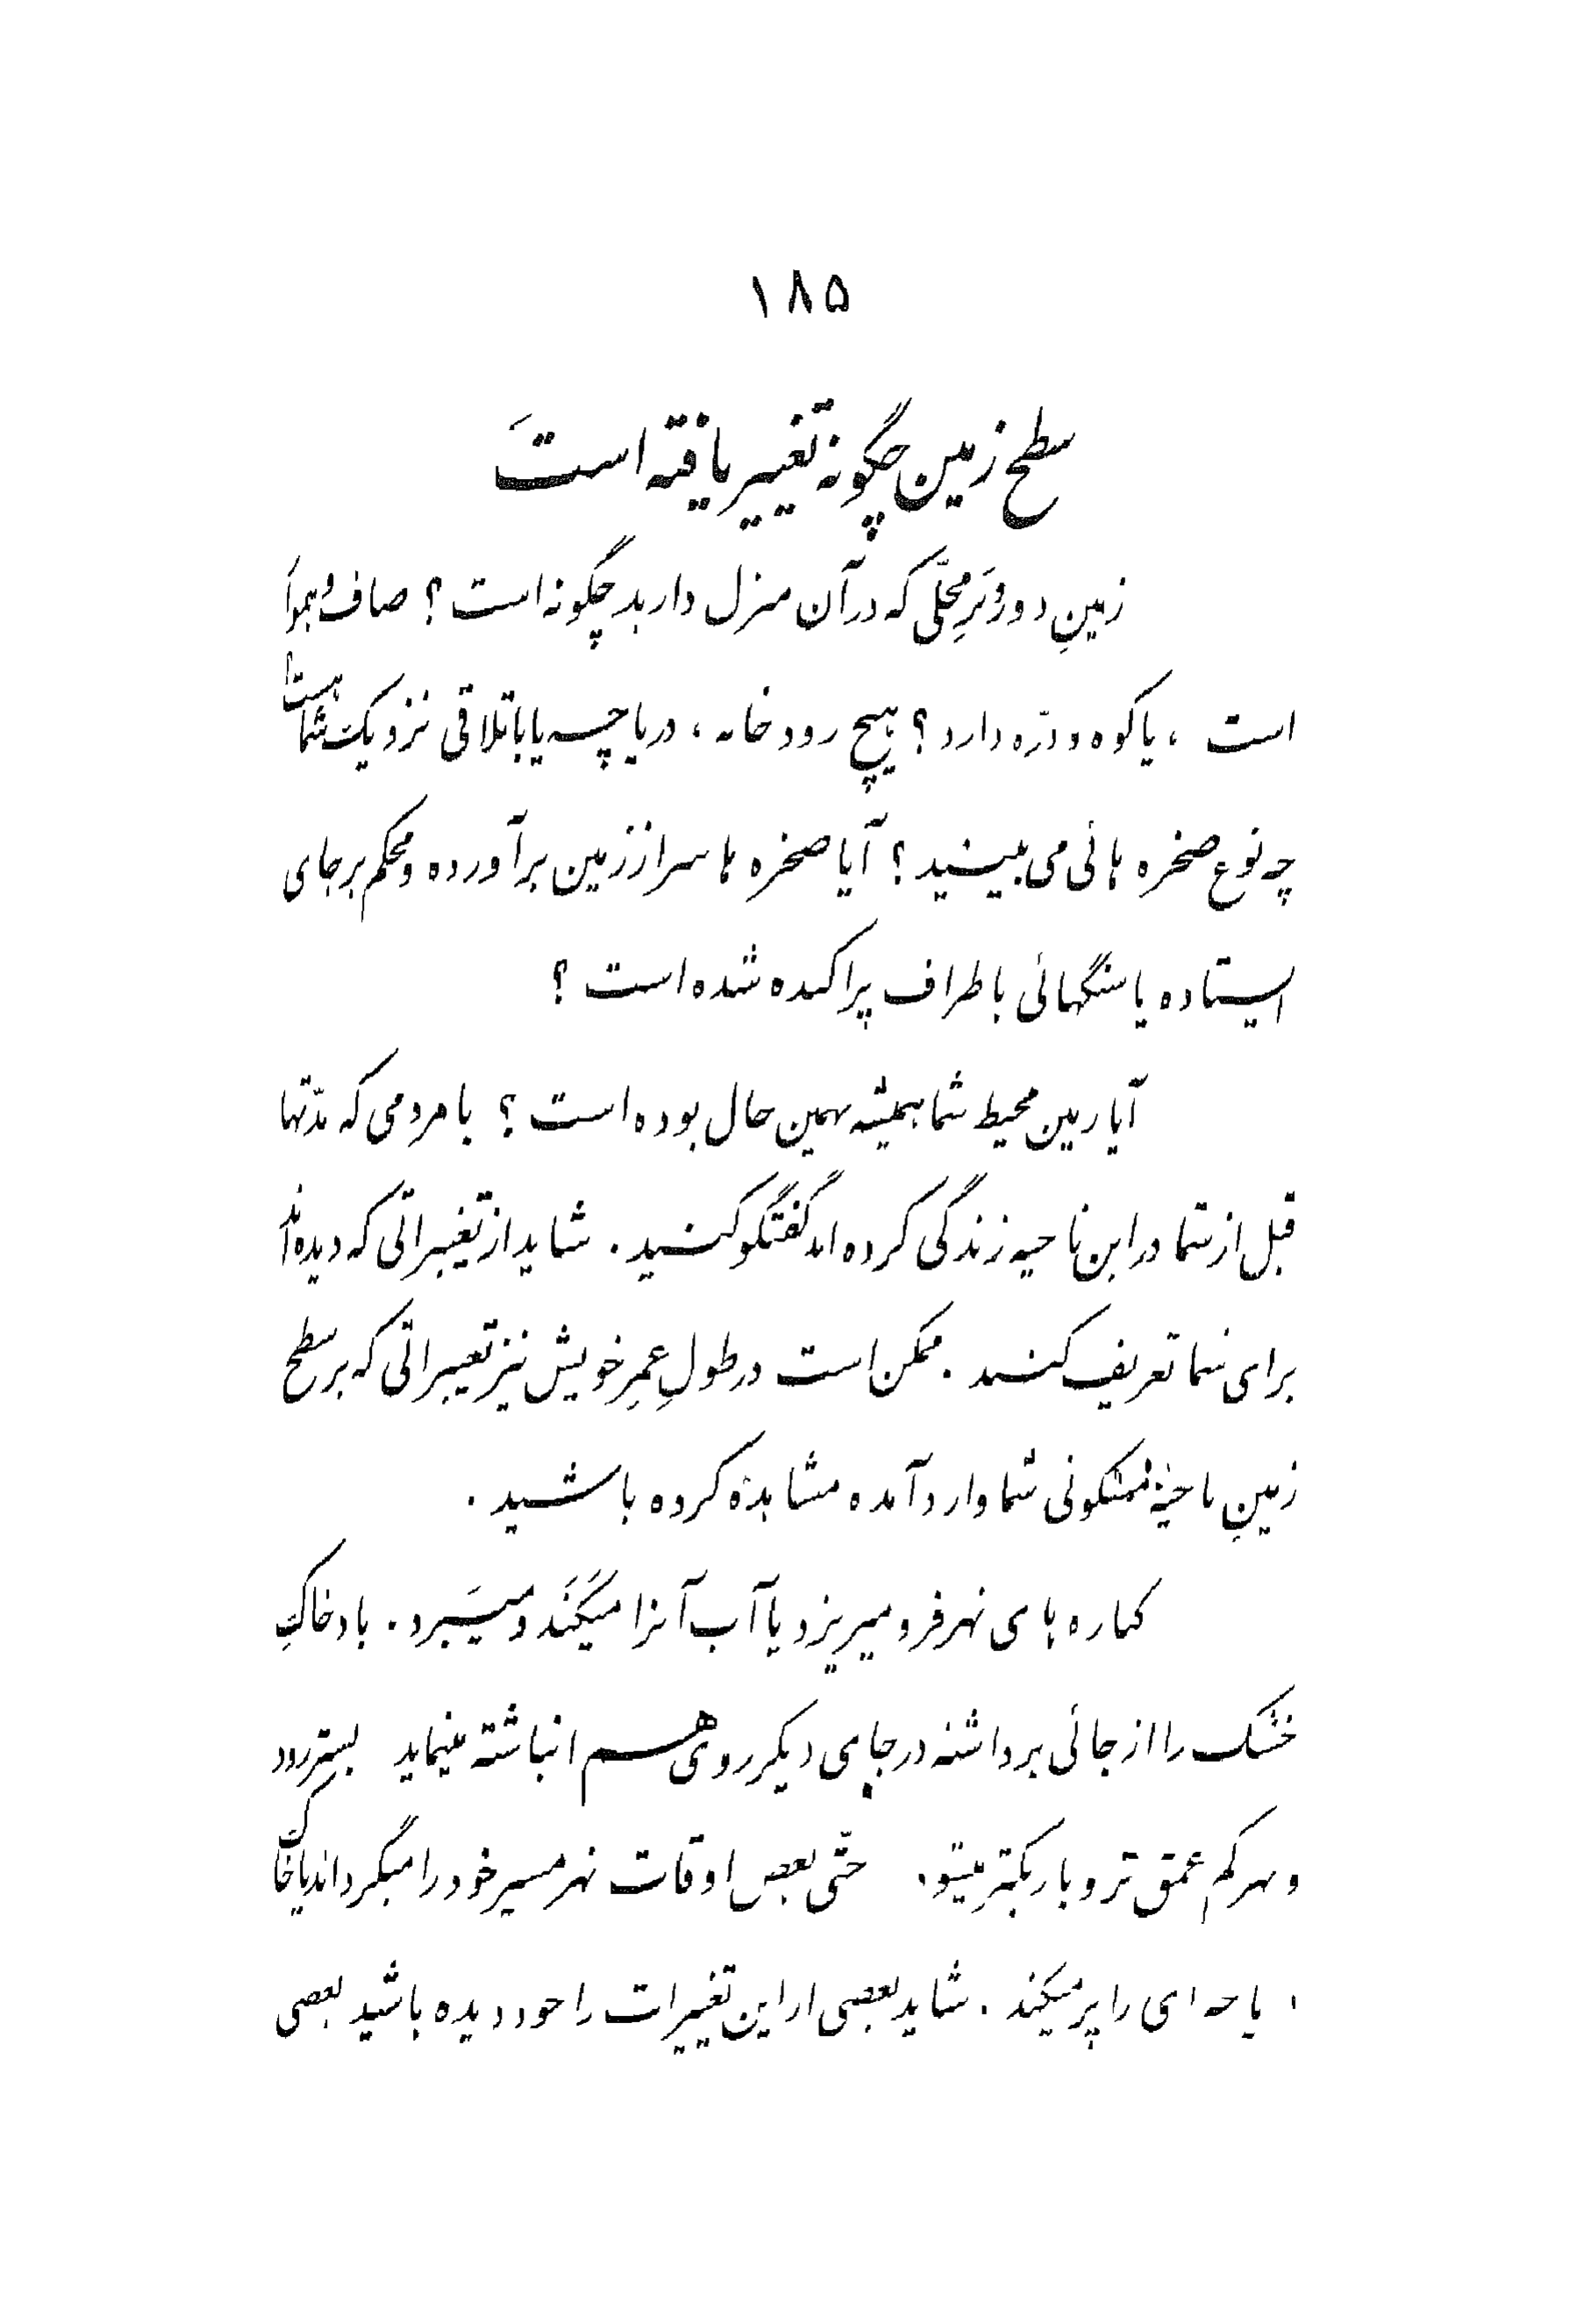 ۱۸۵
سطح زمین چگونه تغییر یافته است
زمینِ دور و بَرِ محلّی که در آن منزل دارید چگونه است ؟ صاف و هموا
است ، یا کوه و درّه دارد ؟ هیچ رودخانه ، دریاچه یا باتلاقی نزدیک شما هست ؟
چه نوع صخره هائی می بینید ؟ آیا صخره ها سر از زمین برآورده و محکم بر جای
ایستاده یا سنگهائی باطراف پراکنده شده است ؟
آیا زمین محیط شما همیشه بهمین حال بوده است ؟ با مردمی که مدّتها
قبل از شما در این ناحیه زندگی کرده اند گفتگو کنید . شاید از تغییراتی که دیده اند
برای شما تعریف کنند . ممکن است در طولِ عمرِ خویش نیز تغییراتی که بر سطح
زمینِ ناحیهٔ مسکونی شما وارد آمده مشاهده کرده باشید .
کناره های نهر فرو میریزد یا آب آنرا میکَنَد و میبَرد . باد خاکِ
خشک را از جائی برداشته در جای دیگر روی هم انباشته مینماید بستر رود
و نهر کم عمق تر و باریکتر میشود . حتّی بعض اوقات نهر مسیر خود را میگرداند یا خاک
یاچه ای را پر میکند . شاید بعضی از این تغییرات را خود دیده باشید بعضی